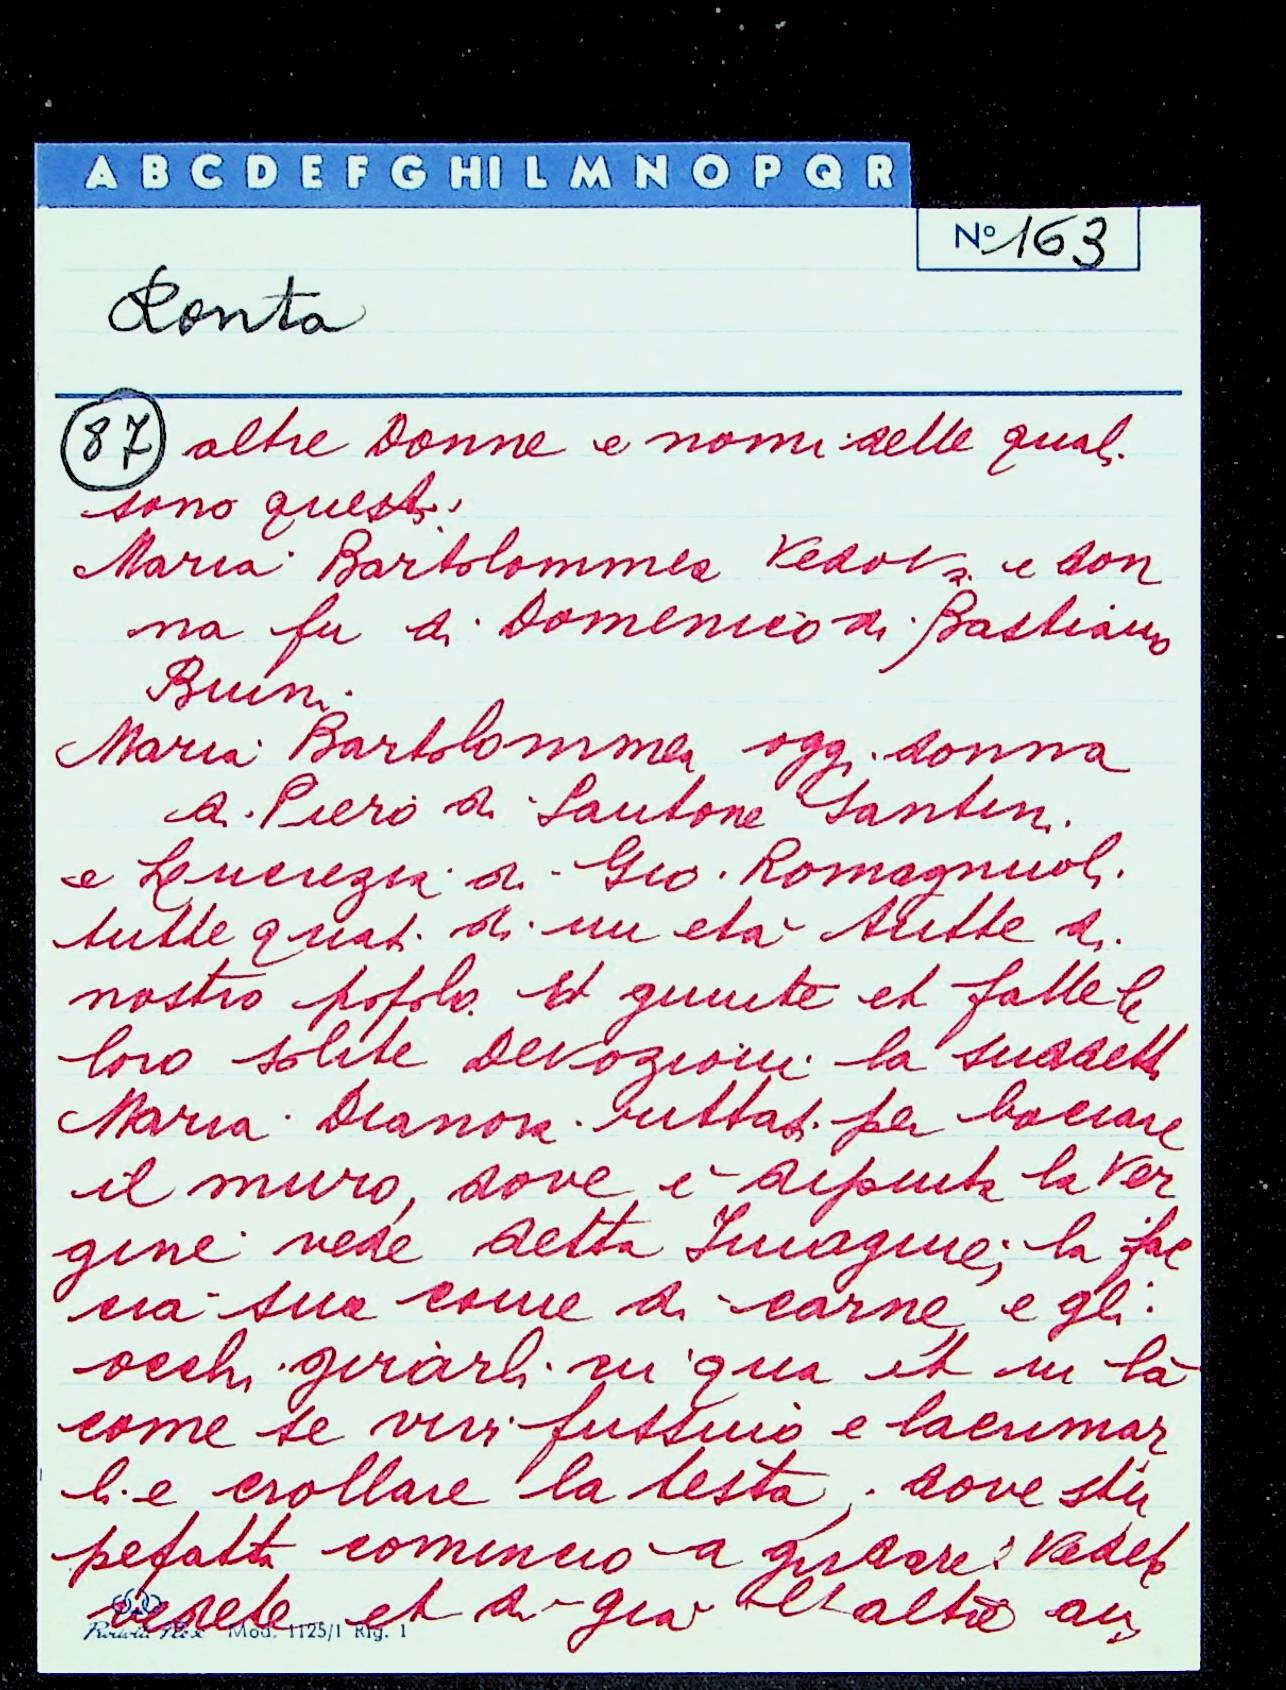 A B C D E F G HI L M N O P Q R
Nº 163
Ronta
87 altre Donne e nomi delle quali
sono questi
Maria Bartolommea Vedova e don
na fu di Domenico di Bastiano
Buini
Maria Bartolommea oggi donna
di Piero di Santone Santini
e Lucrezia di Gio. Romagnuoli
tutte quat. di un età tutte di
nostro popolo. Et giunte et fatte le
loro solite Devozioni la suddetta
Maria Dianora rittasi per baciare
il muro, dove è dipinta la Ver
gine vede detta Imagine; la fac
cia sua come di carne e gli
occhi girarli in qua et in là
come se vivi fussino e lacrimar
li e crollare la testa, dove stu
pefatta cominciò a gridare: Vedete
vedete et di già l'altre
Mod. 1125/1 Rig. 1